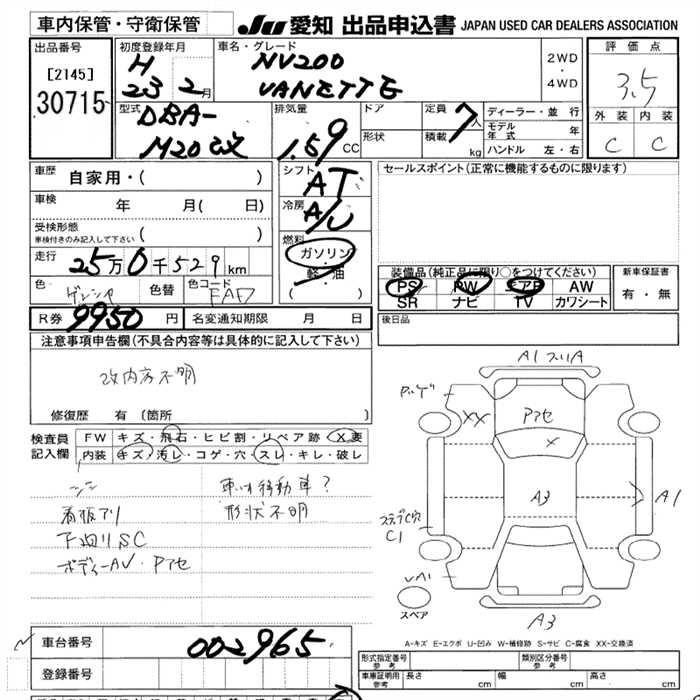 車内保管・守衛保管
JU 愛知 出品申込書 JAPAN USED CAR DEALERS ASSOCIATION
出品番号
[2145]
30715
初度登録年月
H
23 2月
車名・グレード
NV200
VANETTE
2WD
・
4WD
評価点
3.5
外装 内装
C C
型式
DBA-
M20改
排気量
1.59 CC
ドア
形状
定員 7人
積載 kg
ディーラー・並行
モデル年式 年
ハンドル 左・右
車歴 自家用・( )
車検 年 月( 日)
受検形態
車検付きのみ記入して下さい
走行 25万0千529km
色 色替 色コード
R券 9950円 名変通知期限 月 日
シフト AT
冷房 A/C
燃料
ガソリン
軽・油
( )
セールスポイント(正常に機能するものに限ります)
装備品(純正品に限り○をつけてください)
PS PW エアB AW
SR ナビ TV カワシート
新車保証書
有・無
後日品
注意事項申告欄(不具合内容等は具体的に記入して下さい)
改内容不明
修復歴 有(箇所 )
検査員記入欄
FW キズ・飛石・ヒビ割・リペア跡・X要
内装 キズ・汚レ・コゲ・穴・スレ・キレ・破レ
看板アリ
下廻りSC
ボディーAU・Pアセ
車いす移動車?
形状不明
A1
XX
Pアセ
X
A3
A1
C1
A1
スペア
A3
A-キズ E-エクボ U-凹み W-補修跡 S-サビ C-腐食 XX-交換済
車台番号 002965
登録番号
形式指定番号 類別区分番号
車庫証明用参考 長さ cm 幅 cm 高さ cm